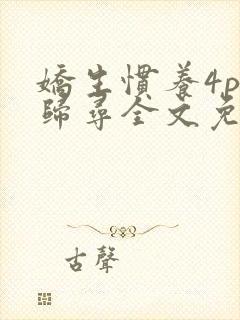 嬌生慣養4p
歸尋全文免
古聲